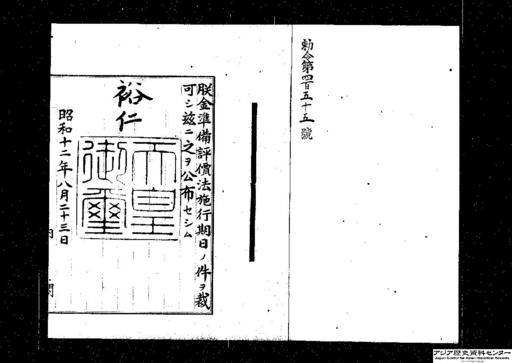 勅令第四百五十五號
朕金準備評價法施行期日ノ件ヲ裁
可シ茲ニ之ヲ公布セシム
裕仁
天皇
御璽
昭和十二年八月二十三日
内閣
アジア歴史資料センター
Japan Center for Asian Historical Records